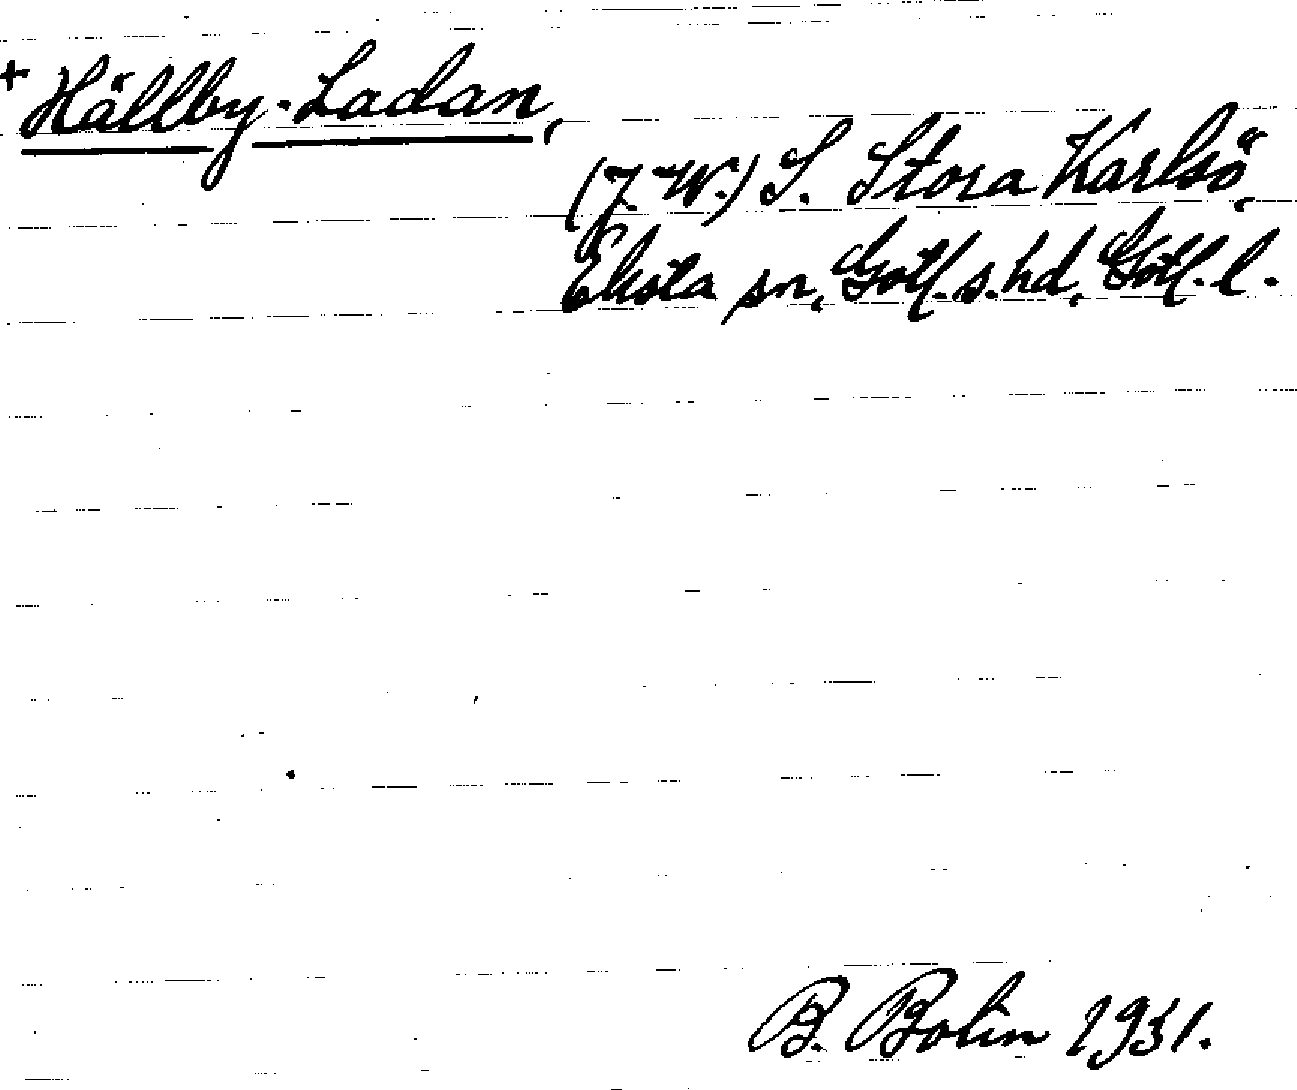 + Hällby-Ladan,
(J. W.) S. Stora Karlsö,
Eksta sn, Gotl. s. hd, Gotl. l.
B. Bolin 1931.